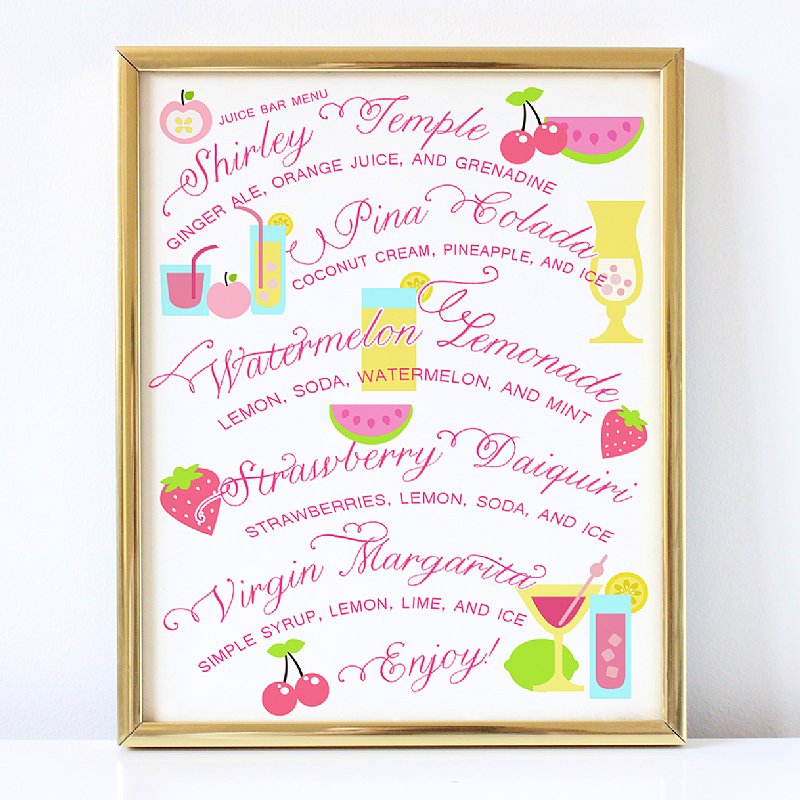 JUICE BAR MENU
Shirley Temple
GINGER ALE, ORANGE JUICE, AND GRENADINE
Pina Colada
COCONUT CREAM, PINEAPPLE, AND ICE
Watermelon Lemonade
LEMON, SODA, WATERMELON, AND MINT
Strawberry Daiquiri
STRAWBERRIES, LEMON, SODA, AND ICE
Virgin Margarita
SIMPLE SYRUP, LEMON, LIME, AND ICE
Enjoy!